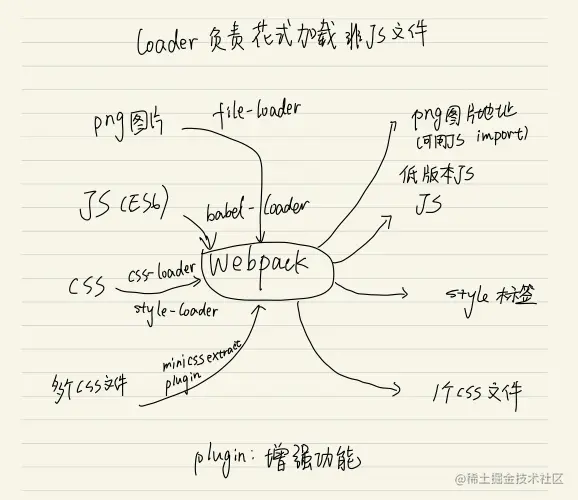 Loader 负责花式加载非JS文件
png图片
file-loader
png图片地址
(可用JS import)
JS (ES6)
babel-loader
低版本JS
JS
Webpack
CSS
css-loader
style-loader
style 标签
多个CSS文件
minicssextract
plugin
1个CSS文件
plugin: 增强功能
@稀土掘金技术社区